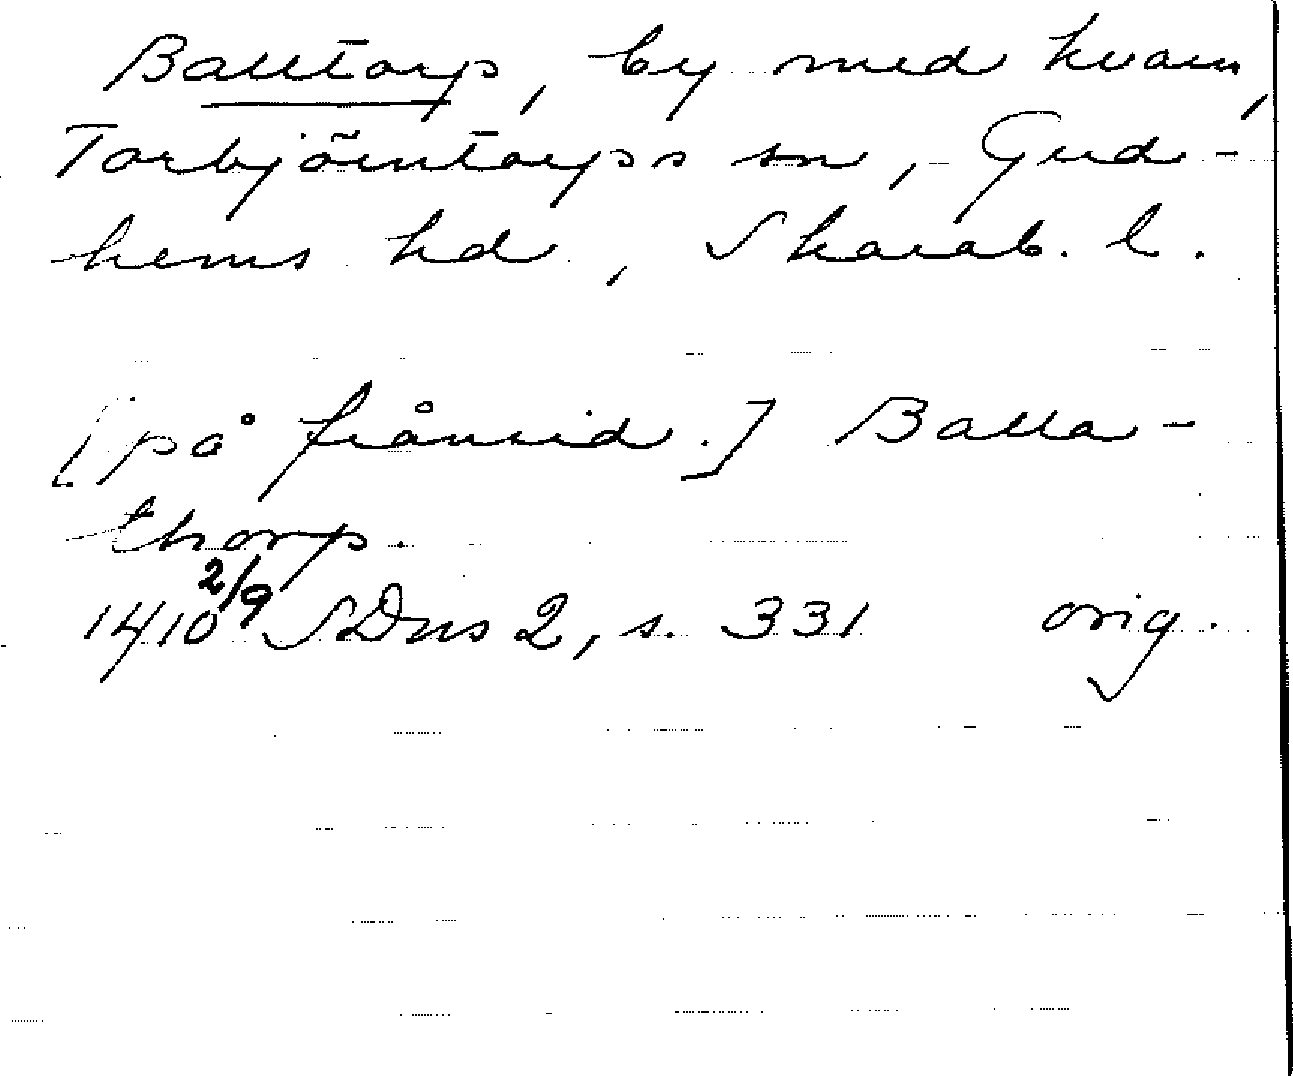 Balltorp, by med kvarn,
Torbjörntorps sn, Gud-
hems hd, Skarab. l.
[på frånsid.] Balla-
thorp.
1410 2/9 SDns 2, s. 331 orig.